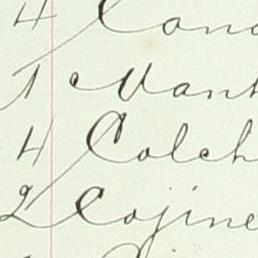 4 Cond
1 Mant
4 Colch
2 Cojine